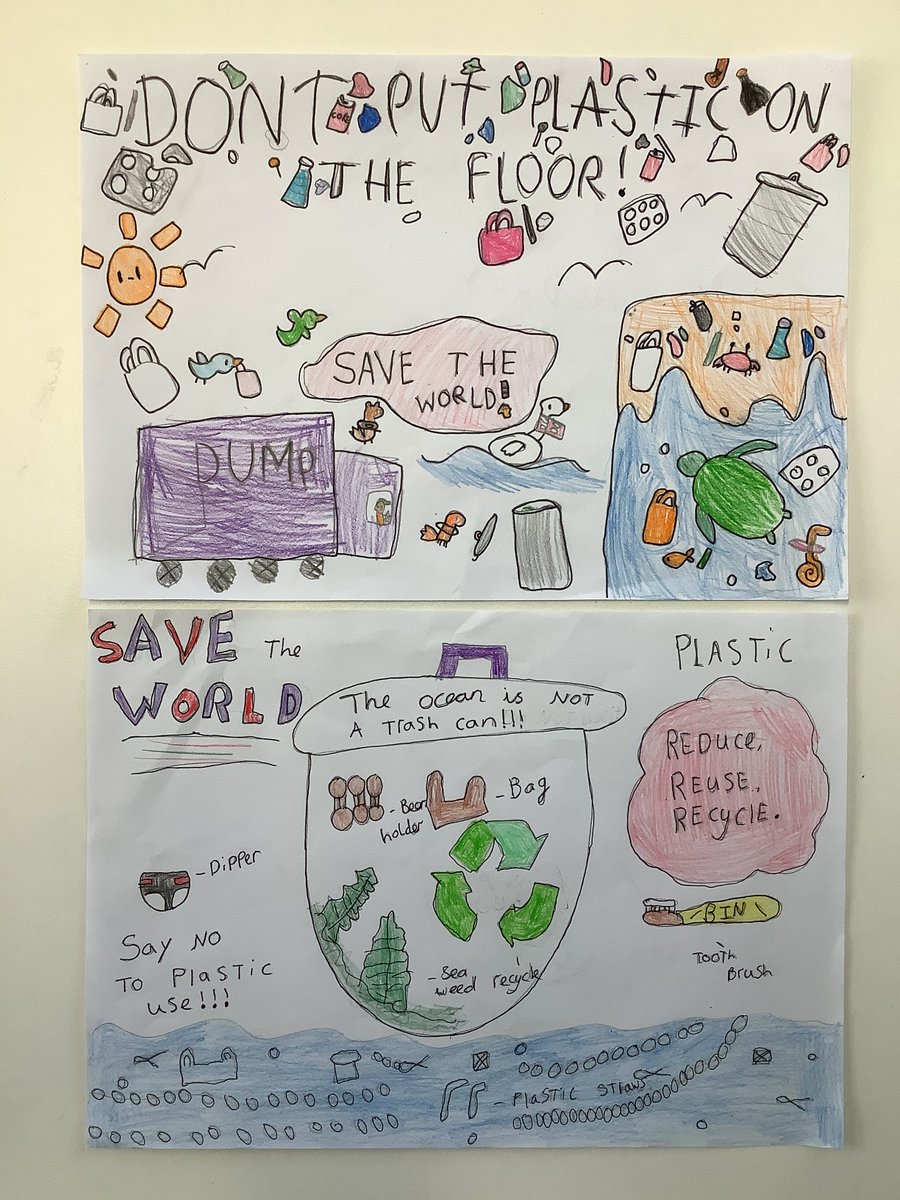 DON'T PUT PLASTIC ON
THE FLOOR!
COKE
SAVE THE
WORLD!
DUMP
SAVE The
WORLD
PLASTiC
The ocean is NOT
A Trash can!!!
REDUCE,
REUSE,
RECYCLE.
- Bag
- Bear
holder
- Dipper
BIN
Tooth
Brush
Say NO
To PlasTic
use!!!
- Sea
weed
recycle
- PlaSTiC STraws